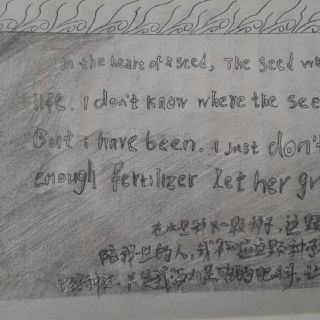 in the heart of a seed, The seed wa
life. I don't know where the see
But i have been. I just don't
enough fertilizer Let her gr
一颗种子, 这颗
陪我一生的人, 我不知道这颗种子
只是我没有足够的肥料, 让